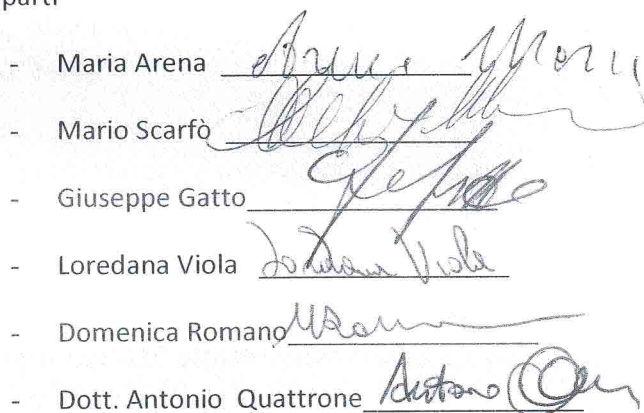 parti
- Maria Arena Arena Maria
- Mario Scarfò
- Giuseppe Gatto
- Loredana Viola Loredana Viola
- Domenica Romano
- Dott. Antonio Quattrone Antonio